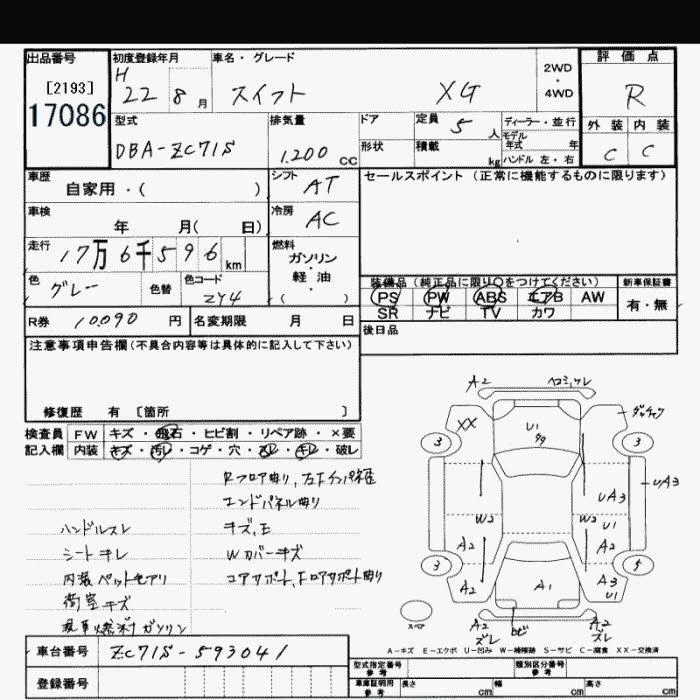 出品番号 初度登録年月 車名・グレード 2WD・4WD 評価点
[2193] H 22 8月 スイフト XG R
17086
型式 排気量 ドア 定員 5人 ディーラー・並行 外装 内装
DBA-ZC71S 1,200cc モデル年式 年 C C
形状 積載 kg ハンドル 左・右
車歴 自家用・( ) シフト AT セールスポイント(正常に機能するものに限ります)
車検 年 月( 日) 冷房 AC
走行 17万6千596km 燃料 ガソリン・軽油( )
色 グレー 色替 色コード ZY4 装備品(純正品に限り○をつけてください) 新車保証書
PS PW ABS エアB AW 有・無
R券 10,090円 名変期限 月 日 SR ナビ TV カワ
後日品
注意事項申告欄(不具合内容等は具体的に記入して下さい)
修復歴 有 [箇所 ]
検査員 FW キズ・飛石・ヒビ割・リペア跡・×要
記入欄 内装 キズ・汚レ・コゲ・穴・スレ・キレ・破レ
Rフロア曲り、左
エンドパネル曲り
ハンドルスレ キズ、E
シートキレ Wカバーキズ
内装ペットモアリ コアサポート、Fロアサポート曲り
荷室キズ
ガソリン
A2
XX U1
3 3
UA3
UA3
W2 W2 U1
A2 A2
3 5
A2 A1 A3
U1
A2 サビ A2
スペア ズレ ズレ
A-キズ E-エクボ U-凹み W-補修跡 S-サビ C-腐食 XX-交換済
車台番号 ZC71S-593041
型式指定番号 参考 類別区分番号 参考
登録番号 車庫証明用 参考 長さ cm 幅 cm 高さ cm